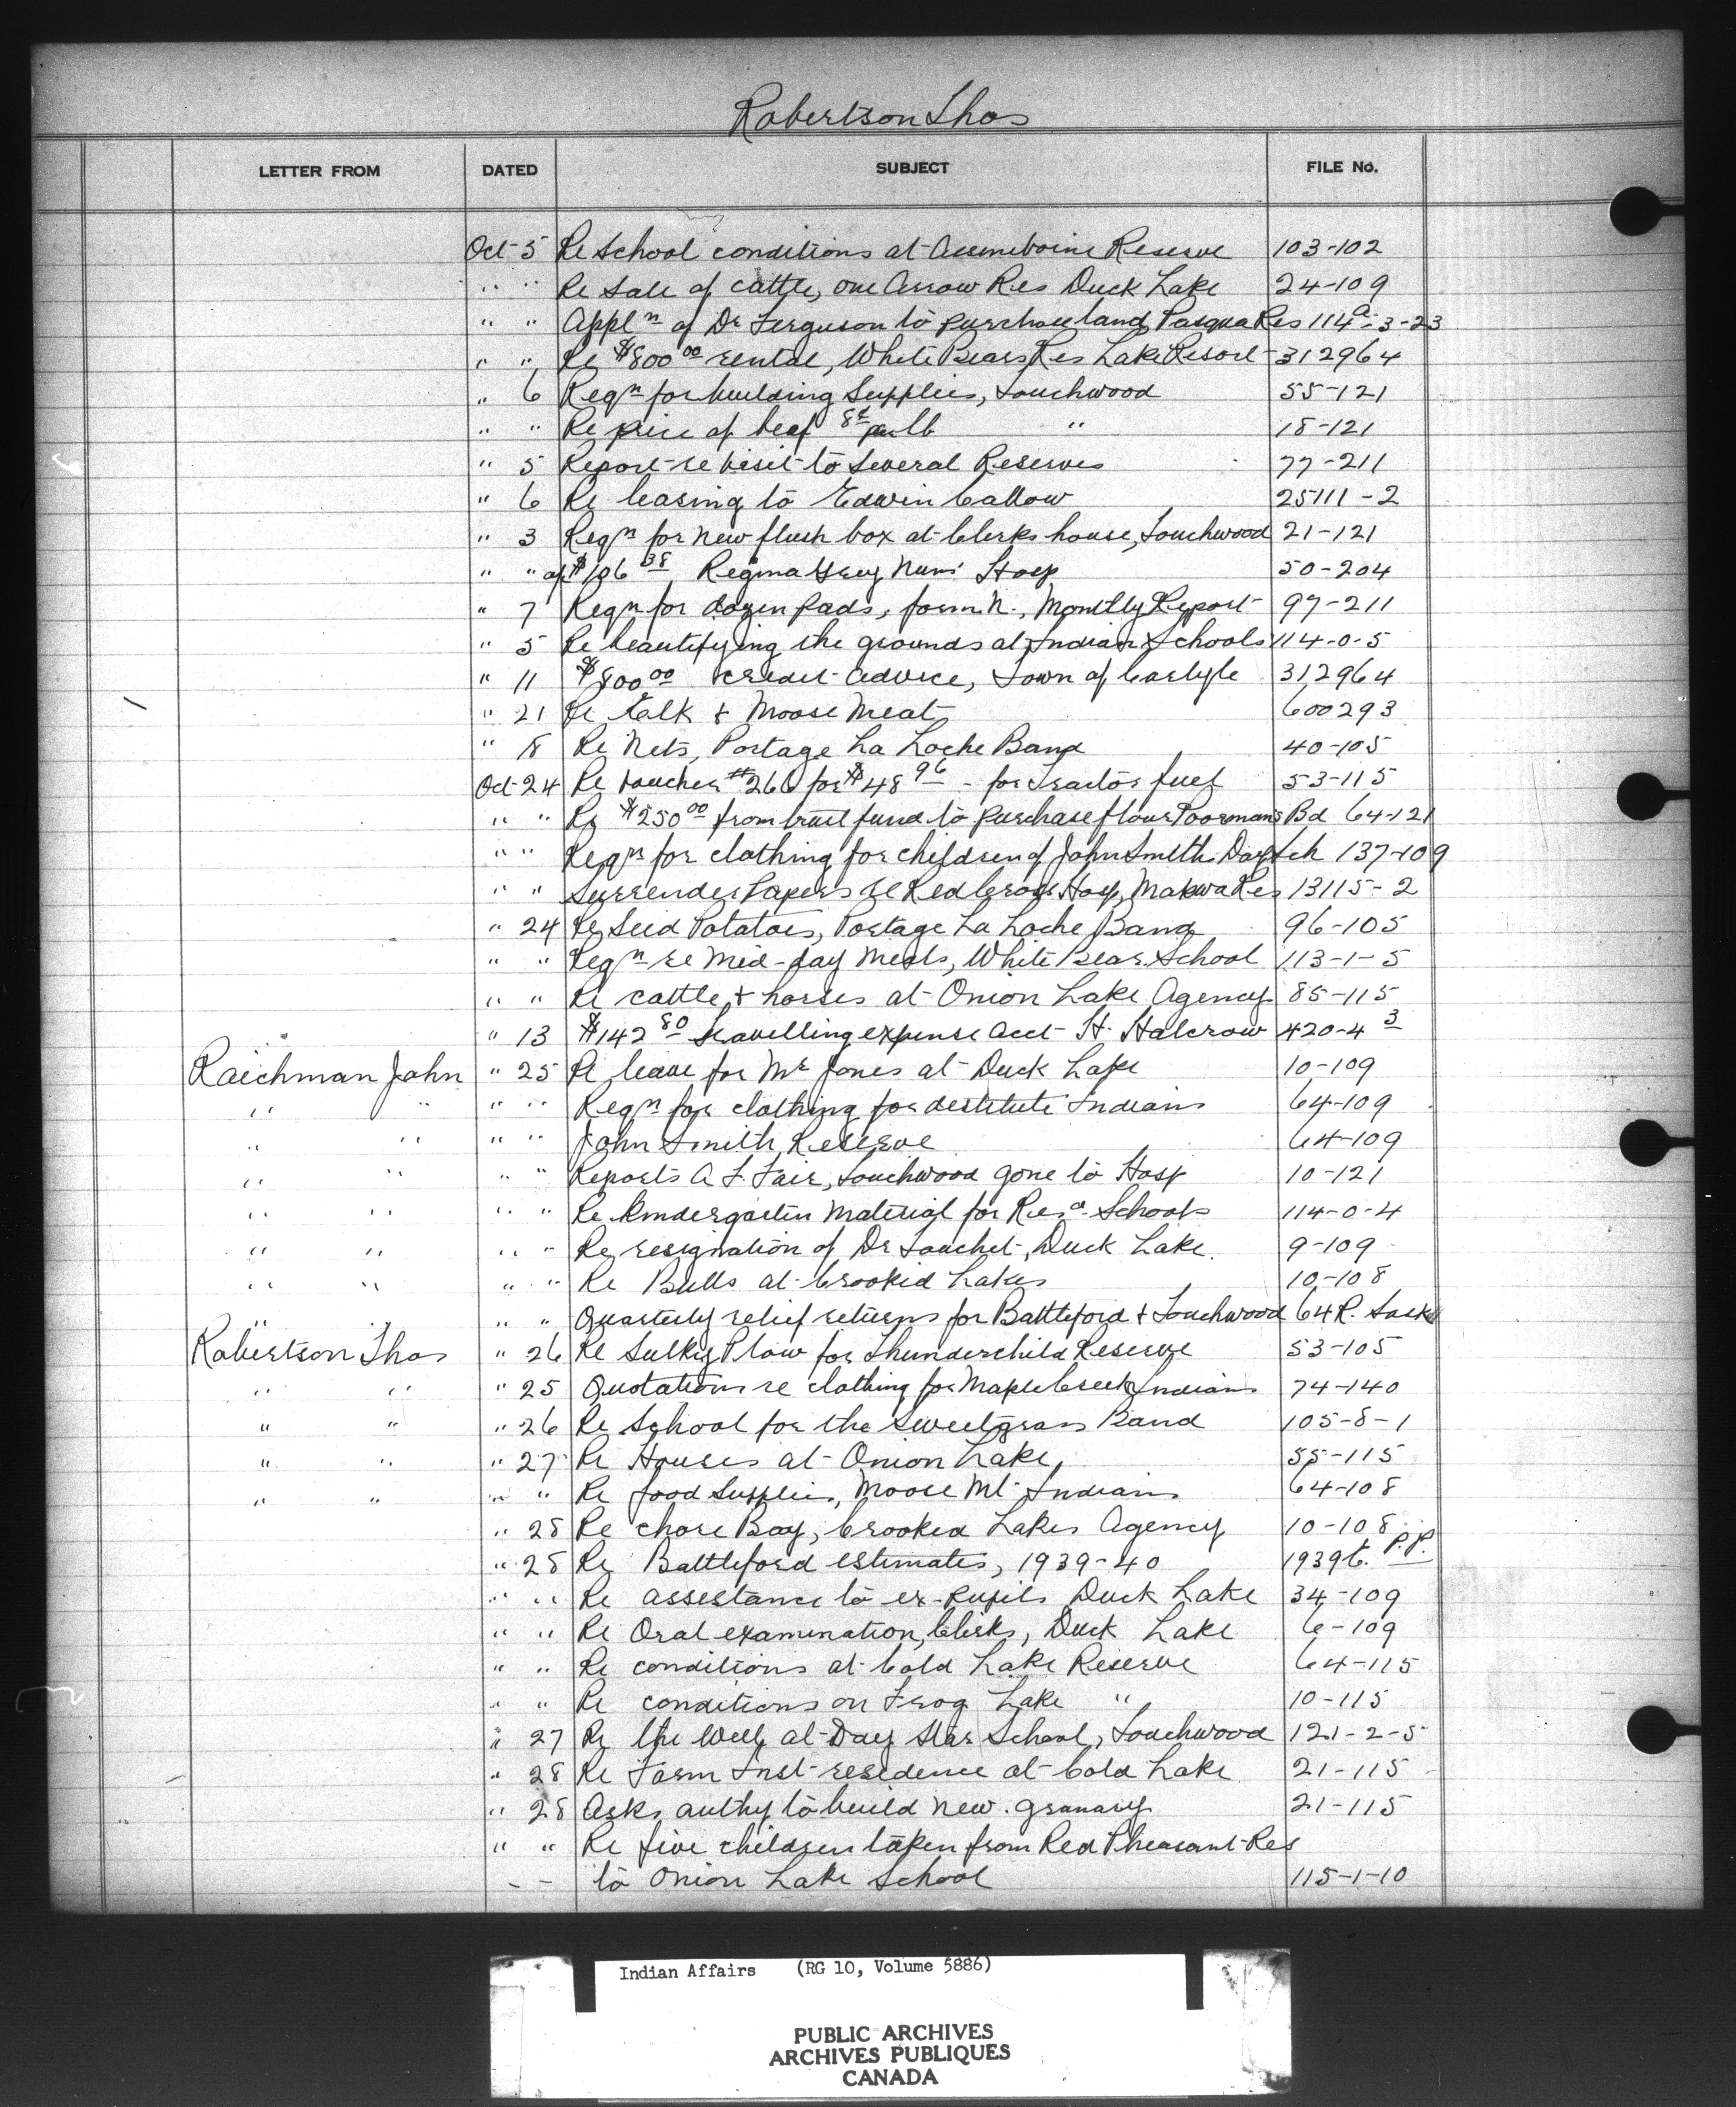 Robertson Thos
LETTER FROM DATED SUBJECT FILE No.
Oct 5 Re School conditions at Assineboine Reserve 103-102
" " Re Sale of cattle, One Arrow Res Duck Lake 24-109
" " Appl n of Dr Ferguson to purchase land, Pasqua Res 114 a-3-23
" " Re $800 00 rental, White Bears Res Lake Resort 312964
" 6 Reqn for building Supplies, Touchwood 55-121
" " Re price of beef 8¢ per lb " 18-121
" 5 Report re visit to Several Reserves 77-211
" 6 Re leasing to Edwin Callow 25111-2
" 3 Reqn for new flush box at Clerks house, Touchwood 21-121
" " a/c $106 38 Regina Grey Nuns' Hosp 50-204
" 7 Reqn for dozen pads, form N., Monthly Report 97-211
" 5 Re beautifying the grounds at Indian Schools 114-0-5
" 11 $800 00 credit advice, Town of Carlyle 312964
" 21 Re Ealk & Moose Meat 600293
" 18 Re Nets, Portage La Loche Band 40-105
Oct 24 Re voucher #266 for $48 96 - for Tractor fuel 53-115
" " Re $250 00 from trust fund to purchase flour Poormans Bd 64-121
" " Reqn for clothing for children of John Smith Day Sch 137-109
" " Surrender Papers re Red Cross Hosp, Makwa Res 13115-2
" 24 Re Seed Potatoes, Portage La Loche Band 96-105
" " Reqn re Mid-day Meals, White Bear School 113-1-5
" " Re cattle & horses at Onion Lake Agency 85-115
" 13 $142 80 travelling expense acct H. Halcrow 420-4 3
Raichman John " 25 Re leave for Mr Jones at Duck Lake 10-109
" " " " Reqn for clothing for destitute Indians 64-109
" " " " John Smith Reserve 64-109
" " " " Reports A. F. Fair, Touchwood gone to Hosp 10-121
" " " " Re Kindergarten Material for Resd Schools 114-0-4
" " " " Re resignation of Dr Touchet, Duck Lake. 9-109
" " " " Re Bulls at Crooked Lakes 10-108
" " " " Quarterly relief returns for Battleford & Touchwood 64R. Sask
Robertson Thos " 26 Re Sulky Plow for Thunderchild Reserve 53-105
" " " 25 Quotations re clothing for Maple Creek Indians 74-140
" " " 26 Re School for the Sweetgrass Band 105-8-1
" " " 27 Re Houses at Onion Lake, 55-115
" " " " Re food Supplies, Moose Mt Indians 64-108
" 28 Re chore Boy, Crooked Lakes Agency 10-108
" 28 Re Battleford estimates, 1939-40 1939 E. P.P.
" " Re assestance to ex-pupils Duck Lake 34-109
" " Re Oral examination, Clerks, Duck Lake 6-109
" " Re conditions at Cold Lake Reserve 64-115
" " Re conditions on Frog Lake " 10-115
" 27 Re the Well at Day Star School, Touchwood 121-2-5
" 28 Re Farm Inst residence at Cold Lake 21-115
" 28 Asks authy to build new granary 21-115
" " Re five children taken from Red Pheasant Res
- - to Onion Lake School 115-1-10
Indian Affairs (RG 10, Volume 5886)
PUBLIC ARCHIVES
ARCHIVES PUBLIQUES
CANADA